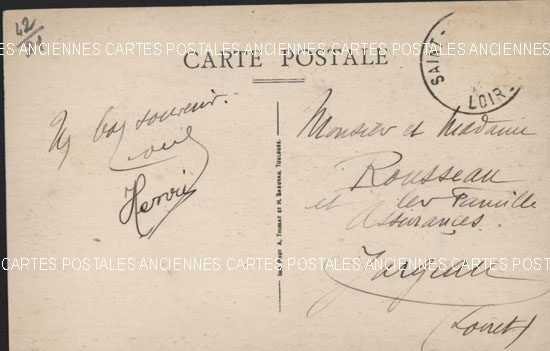 42
CARTE POSTALE
SAINT-
LOIR-
Un bon souvenir.
Hervé
Imp. Phot. A. Thiriat et H. Basuyau, Toulouse.
Monsieur et Madame
Rousseau
et leur Famille
Assurances.
Jargeau
(Loiret)
CARTES POSTALES ANCIENNES CARTES POSTALES ANCIENNES CARTES POSTALES ANCIENNES CARTES
CARTES POSTALES ANCIENNES CARTES POSTALES ANCIENNES CARTES POSTALES ANCIENNES CARTES